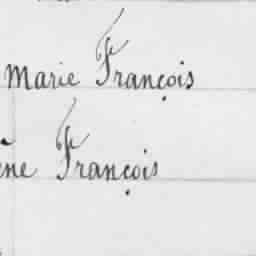 Marie François
ène François